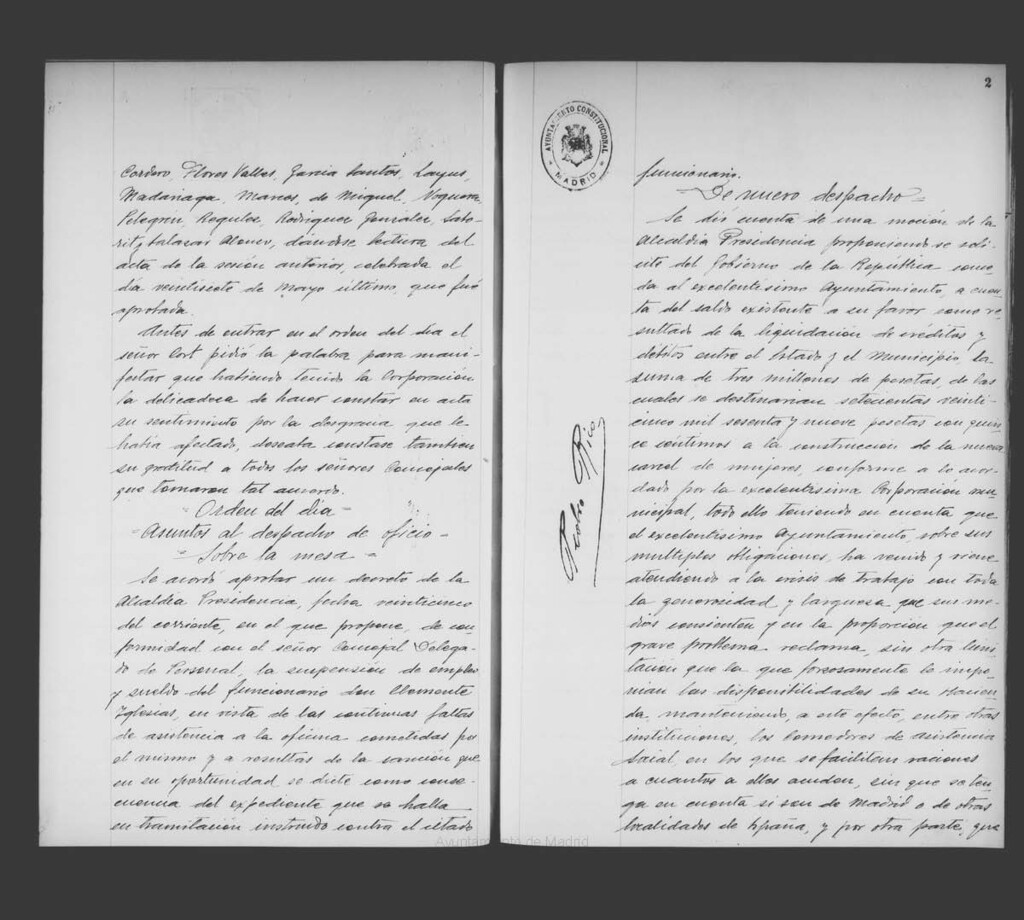 Cordero, Flores Valles, García Santos, Layus,
Madariaga, Marcos, de Miguel, Noguera,
Pelegrin, Regulez, Rodriguez Gonzalez, Sabo-
rit y Salazar Alonso, dándose lectura del
acta de la sesión anterior, celebrada el
día veintisiete de Mayo último, que fué
aprobada.
Antes de entrar en el orden del día el
señor Cort pidió la palabra para mani-
festar que habiendo tenido la Corporación
la delicadeza de hacer constar en acta
su sentimiento por la desgracia que le
había afectado, deseaba constase tambien
su gratitud a todos los señores Concejales
que tomaron tal acuerdo.
- Orden del día -
- Asuntos al despacho de oficio -
- Sobre la mesa -
Se acordó aprobar un decreto de la
Alcaldía Presidencia, fecha veinticinco
del corriente, en el que propone, de con-
formidad con el señor Concejal Delega-
do de Personal, la suspensión de empleo
y sueldo del funcionario don Clemente
Iglesias, en vista de las continuas faltas
de asistencia a la oficina cometidas por
el mismo y a resultas de la sanción que
en su oportunidad se dicte como conse-
cuencia del expediente que se halla
en tramitación instruido contra el citado
2
AYUNTAMIENTO CONSTITUCIONAL
MADRID
Pedro Rico
funcionario.
- De nuevo despacho -
Se dió cuenta de una moción de la
Alcaldía Presidencia proponiendo se soli-
cite del Gobierno de la República conce-
da al excelentísimo Ayuntamiento, a cuen-
ta del saldo existente a su favor como re-
sultado de la liquidación de créditos y
débitos entre el Estado y el Municipio, la
suma de tres millones de pesetas, de las
cuales se destinarían setecientas veinti-
cinco mil sesenta y nueve pesetas con quin-
ce céntimos a la construcción de la nueva
carcel de mujeres, conforme a lo acor-
dado por la excelentísima Corporación mu-
nicipal, todo ello teniendo en cuenta que
el excelentísimo Ayuntamiento, sobre sus
multiples obligaciones, ha venido y viene
atendiendo a la crisis de trabajo con toda
la generosidad y larguesa que sus me-
dios consienten y en la proporción que el
grave problema reclama, sin otra limi-
tacion que la que forzosamente le impo-
nian las disponibilidades de su Hacien-
da, manteniendo, a este efecto, entre otras
instituciones, los Comedores de asistencia
social, en los que se facilitan raciones
a cuantos a ellos acuden, sin que se ten-
ga en cuenta si son de Madrid o de otras
localidades de España, y por otra parte, que
Ayuntamiento de Madrid